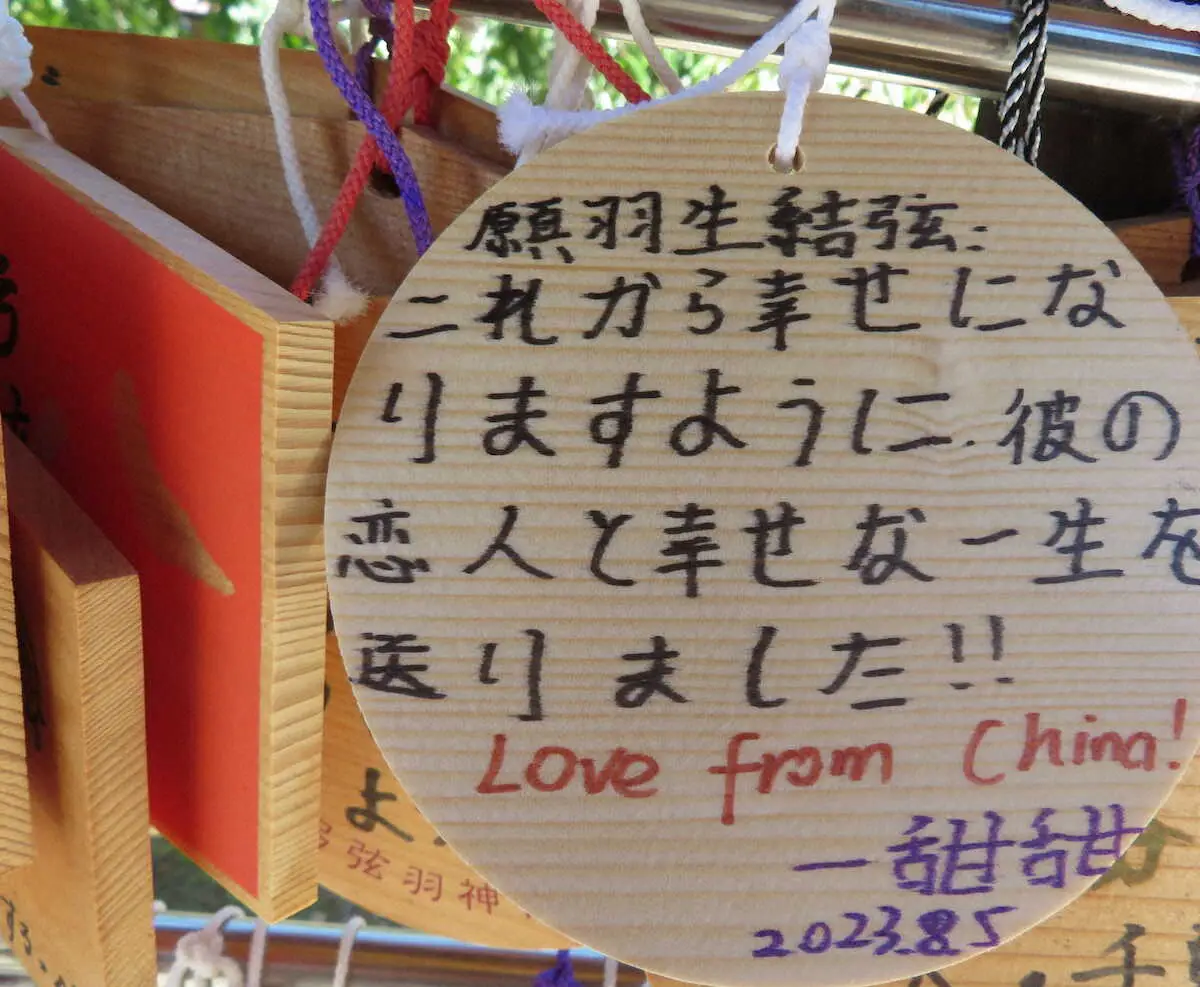 願羽生結弦:
二れから幸せにな
りますように.彼の
恋人と幸せな一生を
送りました!!
Love from China!
一甜甜
2023.8.5
よ
弦羽神